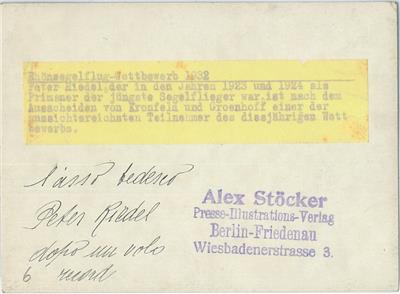 Rhönsegelflug-Wettbewerb 1932
Peter Riedel der in den Jahren 1923 und 1924 als
Primaner der jüngste Segelflieger war,ist nach dem
Ausscheiden von Kronfeld und Groenhoff einer der
aussichtereichsten Teilnehmer des diesjährigen Wett
bewerbs.
l'asso tedesco
Peter Riedel
dopo un volo
6 record
Alex Stöcker
Presse-Illustrations-Verlag
Berlin-Friedenau
Wiesbadenerstrasse 3.